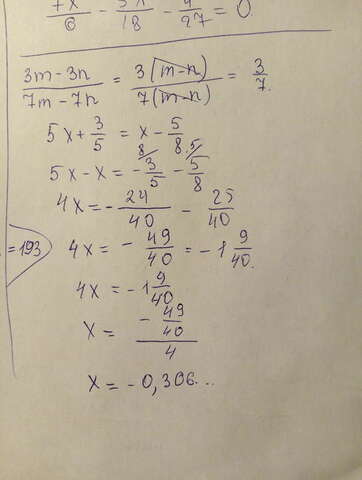 7x/6 - 5x/18 - 4/27 = 0
(3m-3n)/(7m-7n) = 3(m-n)/7(m-n) = 3/7.
5x + 3/5 = x - 5/8
5x - x = - 3/5 - 5/8
4x = - 24/40 - 25/40
=193 4x = - 49/40 = -1 9/40.
4x = -1 9/40
x = (- 49/40)/4
x = -0,306...